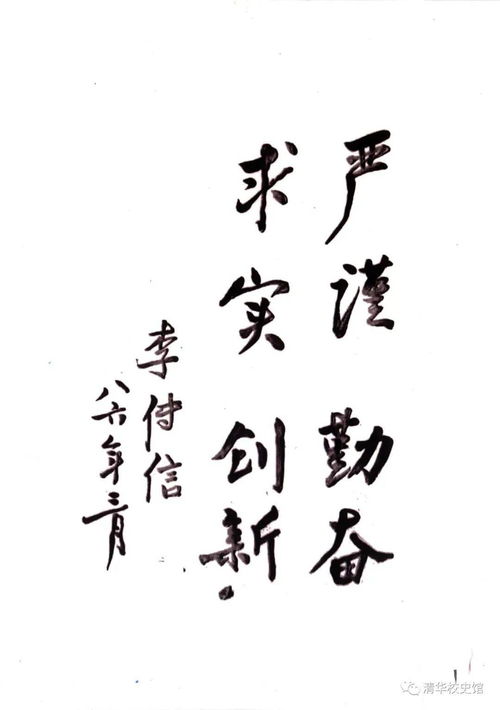 严谨 勤奋
求实 创新。
李传信
八六年三月
清华校史馆